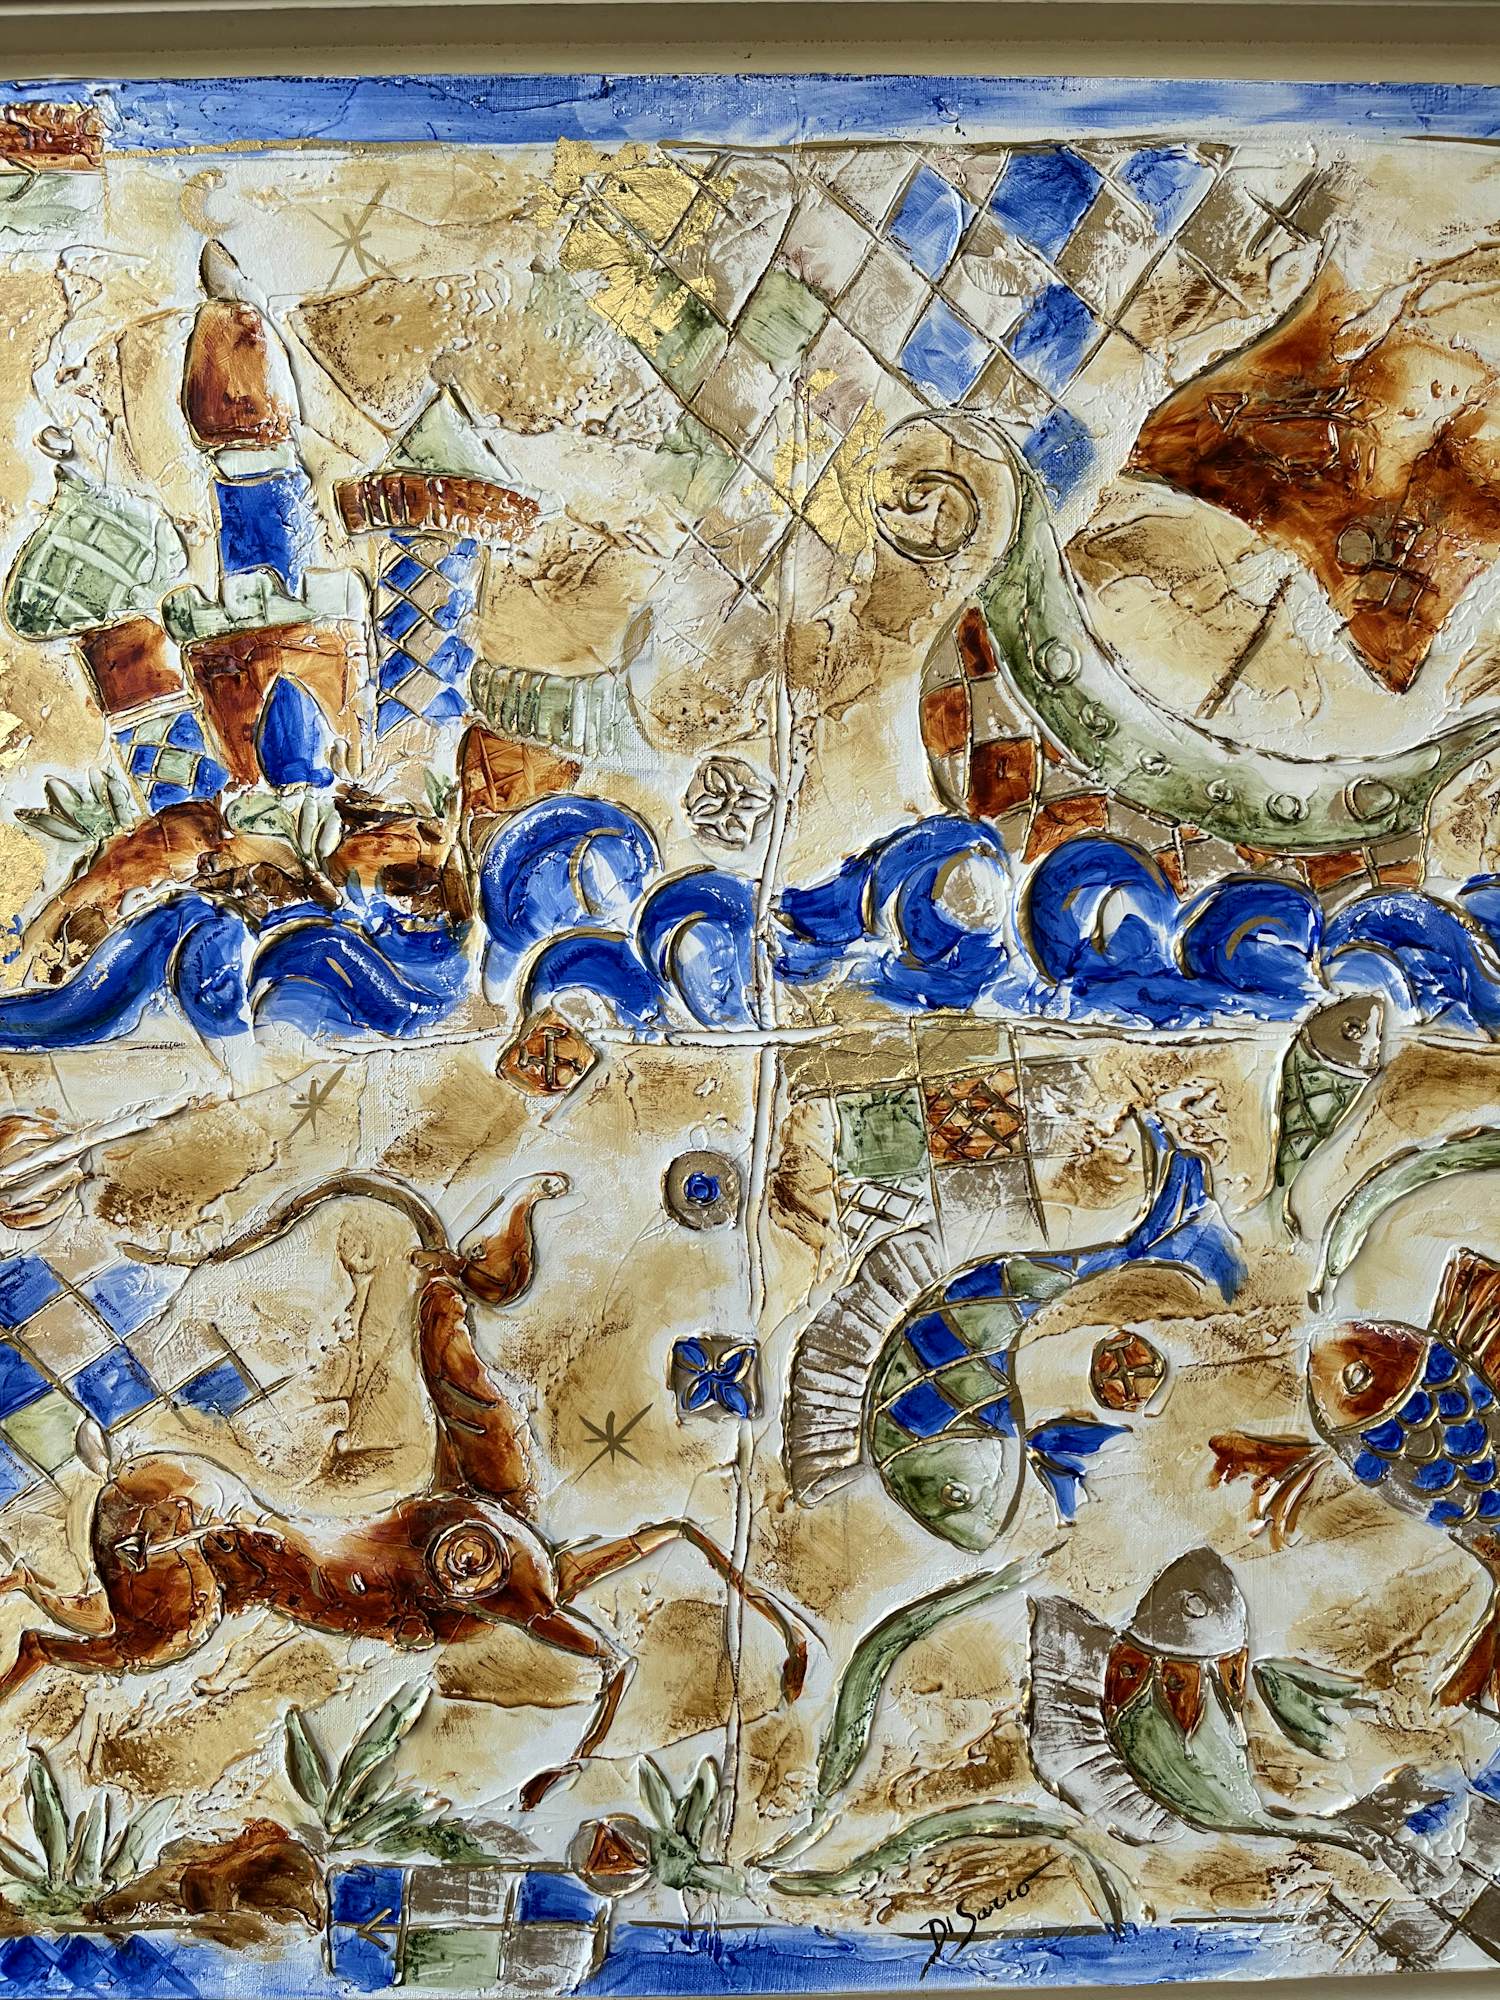 Di Sarro